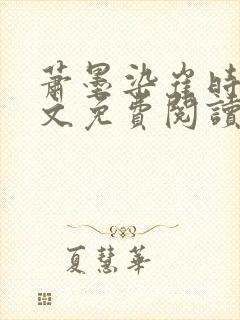 蕭墨染崔時
文免費閱讀
夏慧華